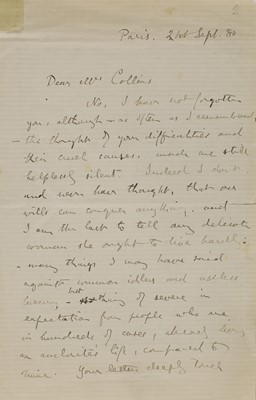 2
Paris. 21st Sept. 80
Dear Mrs Collins
No, I have not forgotten
you, although – as often as I remembered,
– the thought of your difficulties and
their cruel causes, made me still
helplessly silent. Indeed I don't
and never have thought, that our
wills can conquer anything, and –
I am the last to tell any delicate
woman she ought to live hardly.
– many things I may have said
against common idlers and useless
luxury – not thing of severe in
expectation from people who are
in hundreds of cases, already living
an anchorite's life, compared to
mine. Your letter deeply touch